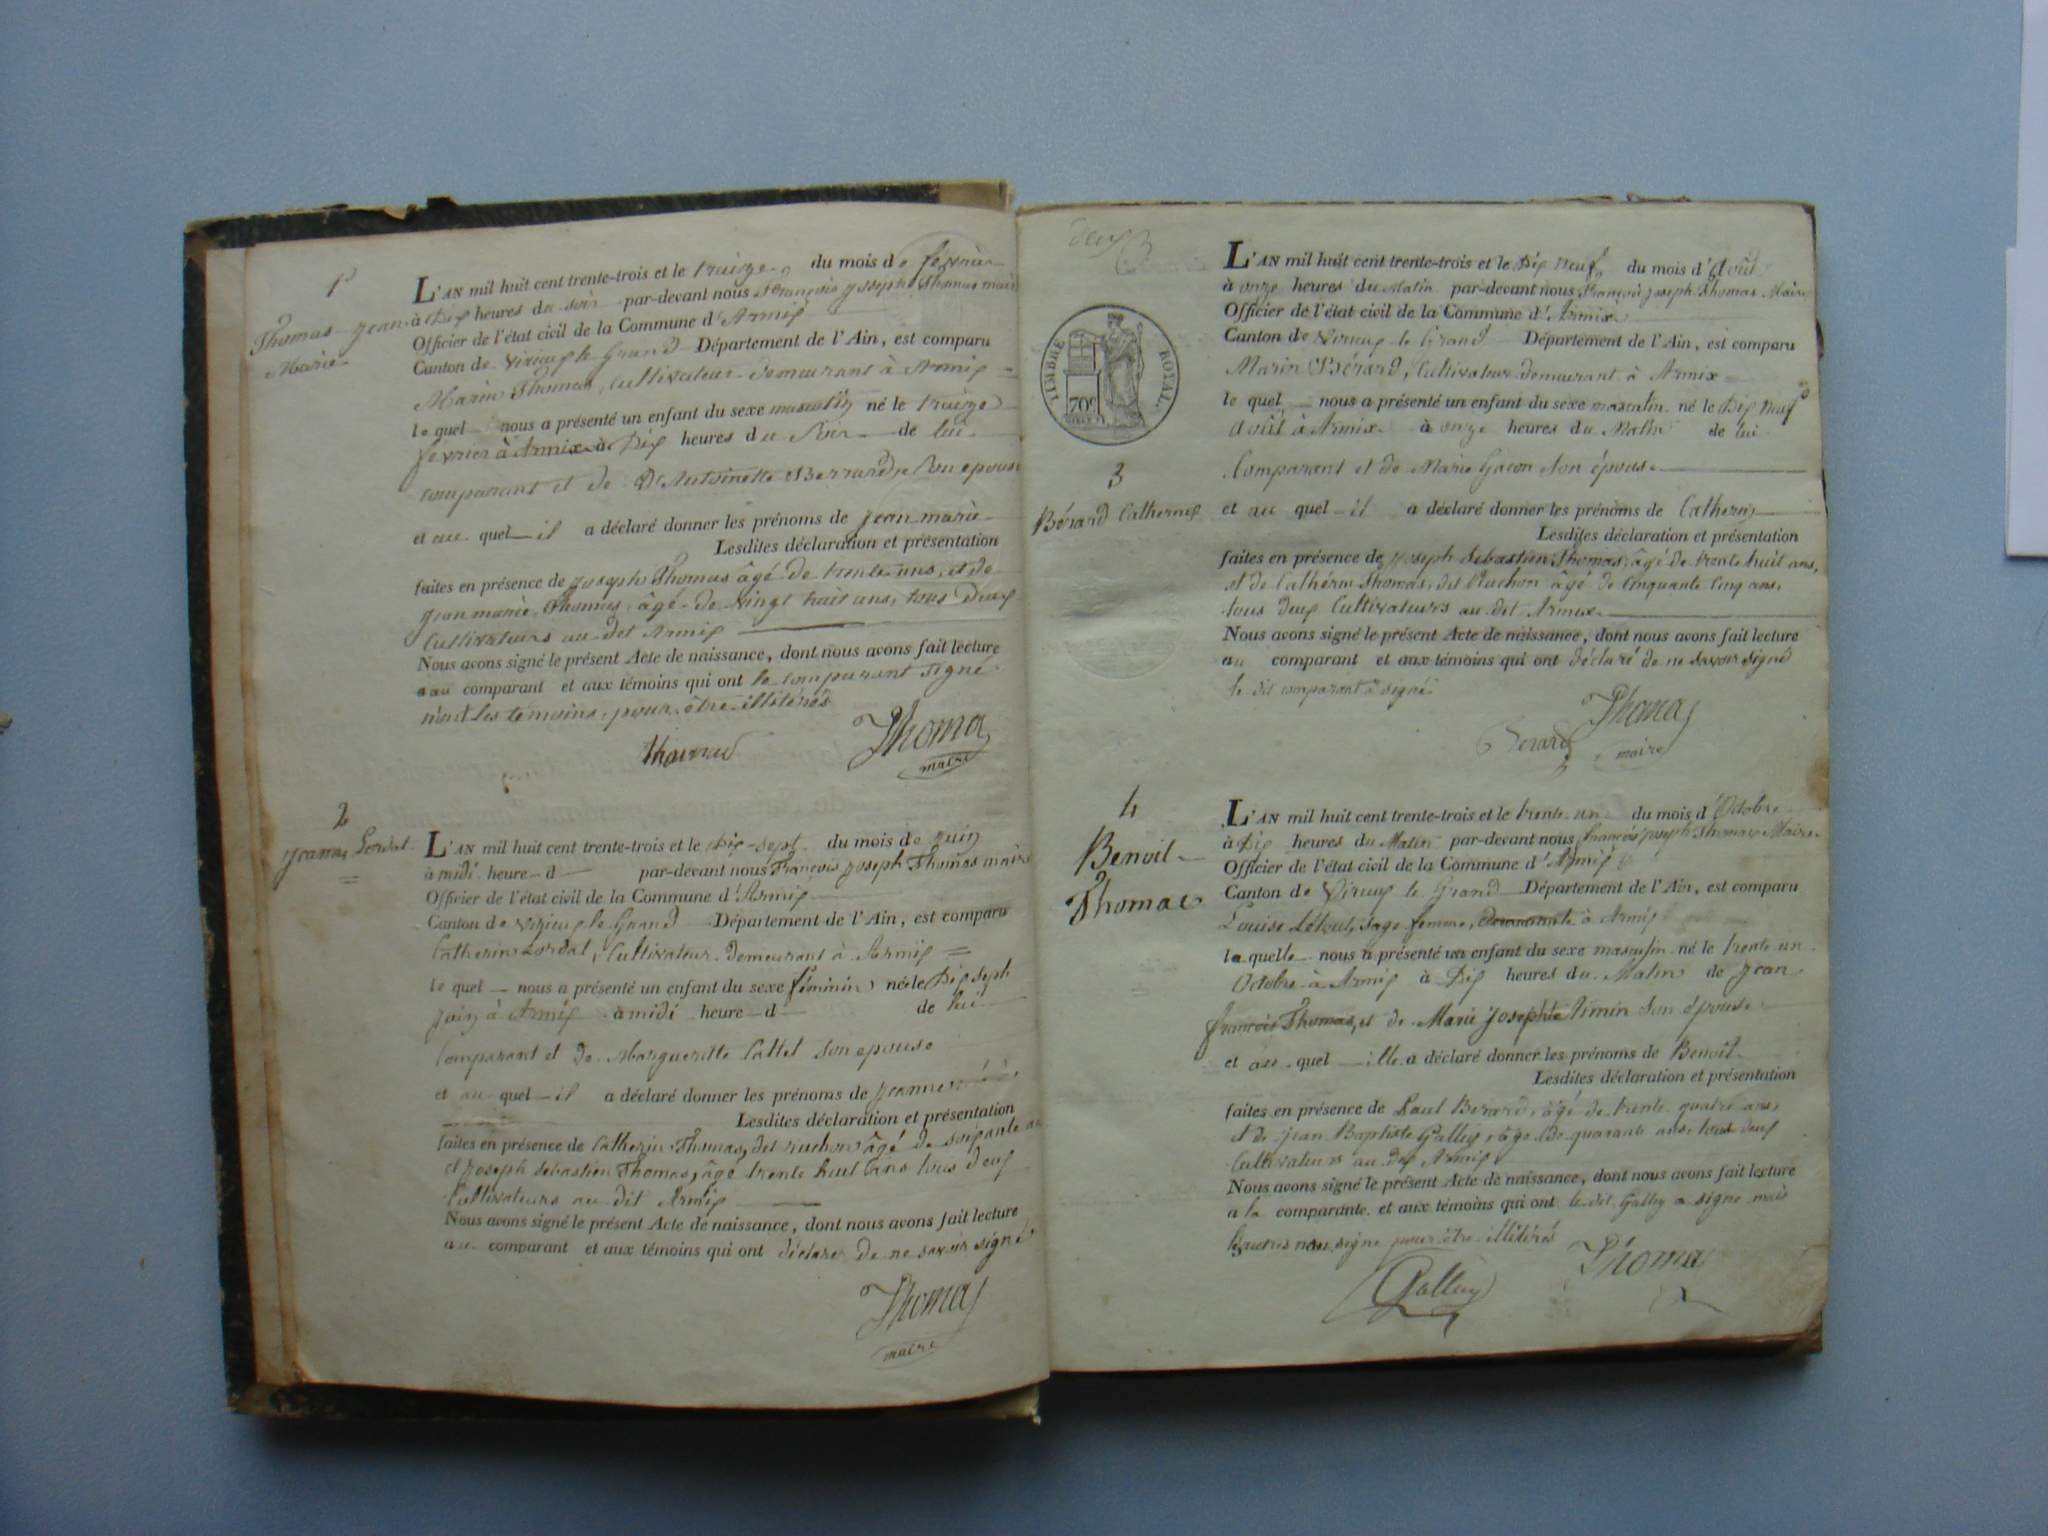 1
Thomas jean
Marie
L'AN mil huit cent trente-trois et le treize, du mois de février
à Dix heures du soir par-devant nous François joseph Thomas maire
Officier de l'état civil de la Commune d'Armix
Canton de Virieux le Grand Département de l'Ain, est comparu
Marin Thomas, Cultivateur demeurant à Armix
le quel nous a présenté un enfant du sexe masculin né le treize
février à Armix à Dix heures du Soir de lui
comparant et de Antoinette Berrard Son epouse
et au quel il a déclaré donner les prénoms de jean marie
Lesdites déclaration et présentation
faites en présence de joseph Thomas âgé de trente ans, et de
jean marie Thomas, âgé de vingt huit ans, tous Deux
Cultivateurs au dit Armix
Nous avons signé le présent Acte de naissance, dont nous avons fait lecture
au comparant et aux témoins qui ont le comparant signé
non les témoins, pour être illitérés
Thomas
Thomas
maire
2
jeanne Lordat
L'AN mil huit cent trente-trois et le Dix-sept du mois de juin
à midi heure d par-devant nous François joseph Thomas maire
Officier de l'état civil de la Commune d'Armix
Canton de Virieux le Grand Département de l'Ain, est comparu
Catherin Lordat, Cultivateur demeurant à Armix
le quel nous a présenté un enfant du sexe féminin né le Dix Sept
juin à Armix à midi heure d de lui
Comparant et de Margueritte Cattet son epouse
et au quel il a déclaré donner les prénoms de jeanne
Lesdites déclaration et présentation
faites en présence de Catherin Thomas, dit ruchon âgé de soixante ans
et joseph sebastien Thomas, âgé trente huit ans tous deux
Cultivateurs au dit Armix
Nous avons signé le présent Acte de naissance, dont nous avons fait lecture
au comparant et aux témoins qui ont déclaré de ne savoir signé
Thomas
maire
deux
TIMBRE ROYAL
70c
3
Bérard Catherin
L'AN mil huit cent trente-trois et le Dix neuf, du mois d'Août
à onze heures du Matin par-devant nous François joseph Thomas Maire
Officier de l'état civil de la Commune d'Armix
Canton de Virieux le Grand Département de l'Ain, est comparu
Marin Bérard, Cultivateur demeurant à Armix
le quel nous a présenté un enfant du sexe masculin né le Dix neuf
Août à Armix à onze heures du Matin de lui
Comparant et de Marie Gacon son épouse
et au quel il a déclaré donner les prénoms de Catherin
Lesdites déclaration et présentation
faites en présence de joseph sebastien Thomas, âgé de trente huit ans,
et de Catherin Thomas, dit Ruchon âgé de Cinquante Cinq ans,
tous deux Cultivateurs au dit Armix
Nous avons signé le présent Acte de naissance, dont nous avons fait lecture
au comparant et aux témoins qui ont déclaré de ne savoir signé
le dit comparant a signé
Thomas
Berard
maire
4
Benoit
Thomas
L'AN mil huit cent trente-trois et le trente un du mois d'Octobre
à Dix heures du Matin par-devant nous François joseph Thomas Maire
Officier de l'état civil de la Commune d'Armix
Canton de Virieux le Grand Département de l'Ain, est comparu
Louise sage femme, demeurante à Armix
la quelle nous a présenté un enfant du sexe masculin né le trente un
Octobre à Armix à Dix heures du Matin de jean
françois Thomas, et de Marie josephte Son épouse
et au quel elle a déclaré donner les prénoms de Benoit
Lesdites déclaration et présentation
faites en présence de Paul Berard, âgé de trente quatre ans,
et de jean Baptiste Gallay âgé de quarante ans, tous deux
Cultivateurs au dit Armix
Nous avons signé le présent Acte de naissance, dont nous avons fait lecture
a la comparante et aux témoins qui ont le dit Gallay a signé mais
les autres non signé pour être illitérés
Thomas
Gallay